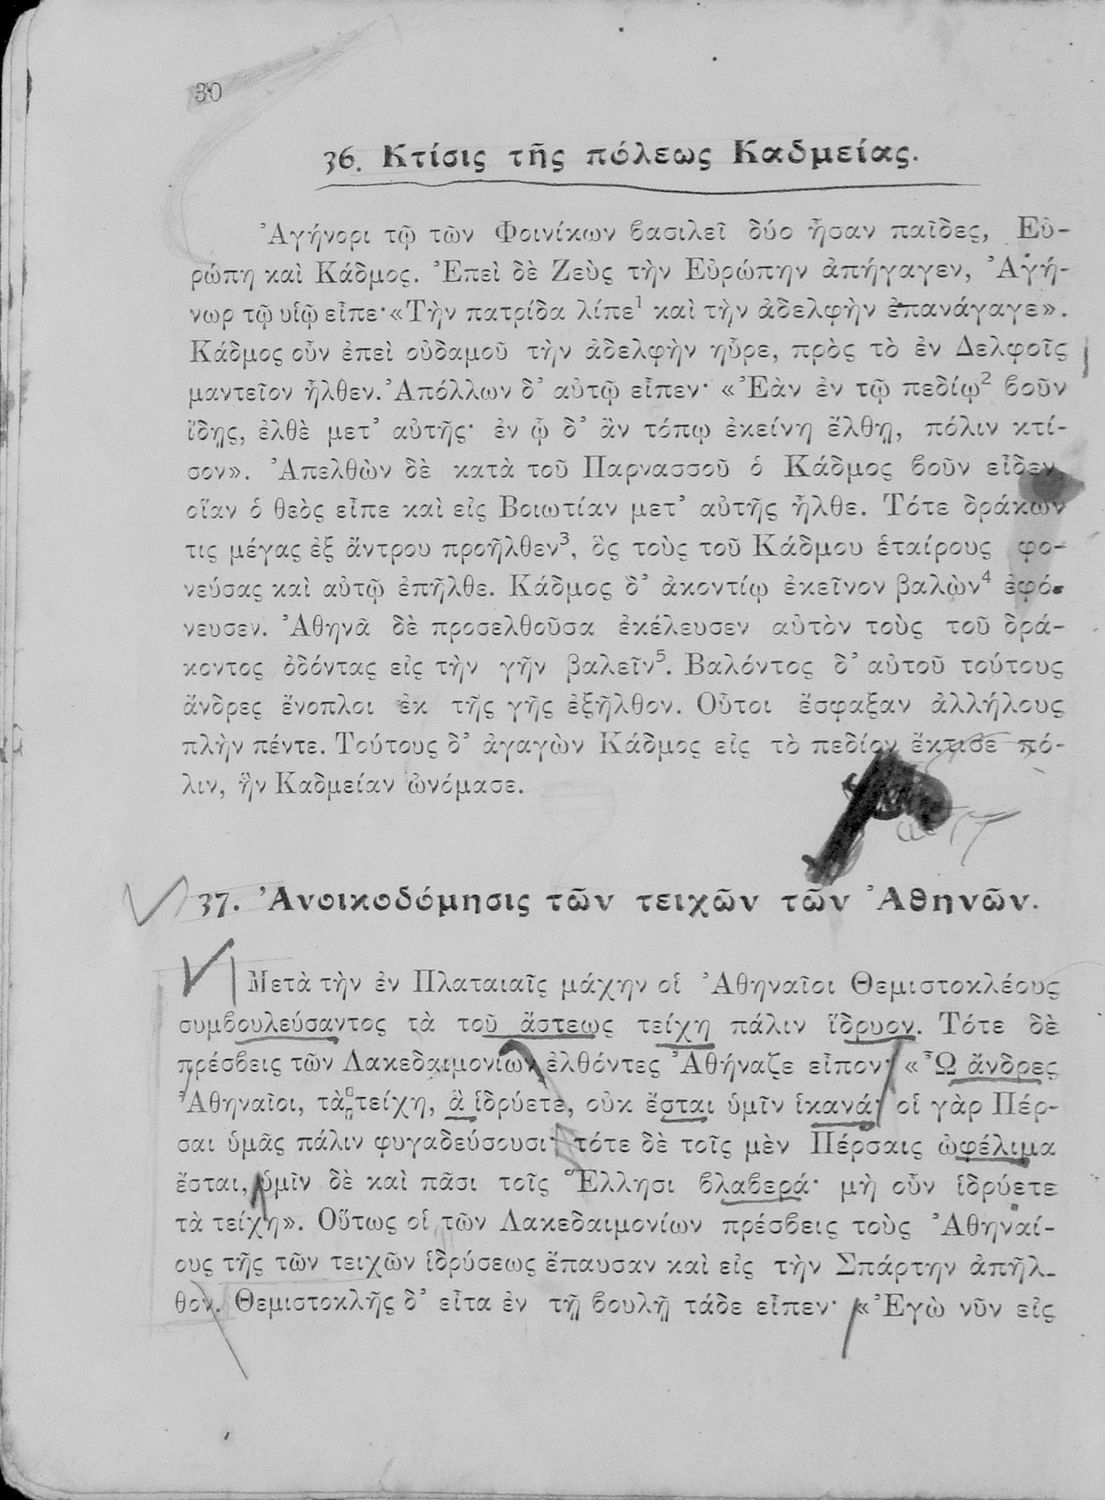 30
36. Κτίσις τῆς πόλεως Καδμείας.
Ἀγήνορι τῷ τῶν Φοινίκων βασιλεῖ δύο ἦσαν παῖδες, Εὐ-
ρώπη καὶ Κάδμος. Ἐπεὶ δὲ Ζεὺς τὴν Εὐρώπην ἀπήγαγεν, Ἀγή-
νωρ τῷ υἱῷ εἶπε· «Τὴν πατρίδα λίπε¹ καὶ τὴν ἀδελφὴν ἐπανάγαγε».
Κάδμος οὖν ἐπεὶ οὐδαμοῦ τὴν ἀδελφὴν ηὗρε, πρὸς τὸ ἐν Δελφοῖς
μαντεῖον ἦλθεν. Ἀπόλλων δ’ αὐτῷ εἶπεν· «Ἐὰν ἐν τῷ πεδίῳ² βοῦν
ἴδῃς, ἐλθὲ μετ’ αὐτῆς· ἐν ᾧ δ’ ἂν τόπῳ ἐκείνη ἔλθῃ, πόλιν κτί-
σον». Ἀπελθὼν δὲ κατὰ τοῦ Παρνασσοῦ ὁ Κάδμος βοῦν εἶδεν,
οἵαν ὁ θεὸς εἶπε καὶ εἰς Βοιωτίαν μετ’ αὐτῆς ἦλθε. Τότε δράκων
τις μέγας ἐξ ἄντρου προῆλθεν³, ὃς τοὺς τοῦ Κάδμου ἑταίρους φο-
νεύσας καὶ αὐτῷ ἐπῆλθε. Κάδμος δ’ ἀκοντίῳ ἐκεῖνον βαλὼν⁴ ἐφό-
νευσεν. Ἀθηνᾶ δὲ προσελθοῦσα ἐκέλευσεν αὐτὸν τοὺς τοῦ δρά-
κοντος ὀδόντας εἰς τὴν γῆν βαλεῖν⁵. Βαλόντος δ’ αὐτοῦ τούτους
ἄνδρες ἔνοπλοι ἐκ τῆς γῆς ἐξῆλθον. Οὗτοι ἔσφαξαν ἀλλήλους
πλὴν πέντε. Τούτους δ’ ἀγαγὼν Κάδμος εἰς τὸ πεδίον ἔκτισε πό-
λιν, ἣν Καδμείαν ὠνόμασε.
37. Ἀνοικοδόμησις τῶν τειχῶν τῶν Ἀθηνῶν.
Μετὰ τὴν ἐν Πλαταιαῖς μάχην οἱ Ἀθηναῖοι Θεμιστοκλέους
συμβουλεύσαντος τὰ τοῦ ἄστεως τείχη πάλιν ἵδρυον. Τότε δὲ
πρέσβεις τῶν Λακεδαιμονίων ἐλθόντες Ἀθήναζε εἶπον· «Ὦ ἄνδρες
Ἀθηναῖοι, τὰ τείχη, ἃ ἱδρύετε, οὐκ ἔσται ὑμῖν ἱκανά· οἱ γὰρ Πέρ-
σαι ὑμᾶς πάλιν φυγαδεύσουσι· τότε δὲ τοῖς μὲν Πέρσαις ὠφέλιμα
ἔσται, ὑμῖν δὲ καὶ πᾶσι τοῖς Ἕλλησι βλαβερά· μὴ οὖν ἱδρύετε
τὰ τείχη». Οὕτως οἱ τῶν Λακεδαιμονίων πρέσβεις τοὺς Ἀθηναί-
ους τῆς τῶν τειχῶν ἱδρύσεως ἔπαυσαν καὶ εἰς τὴν Σπάρτην ἀπῆλ-
θον. Θεμιστοκλῆς δ’ εἶτα ἐν τῇ βουλῇ τάδε εἶπεν· «Ἐγὼ νῦν εἰς